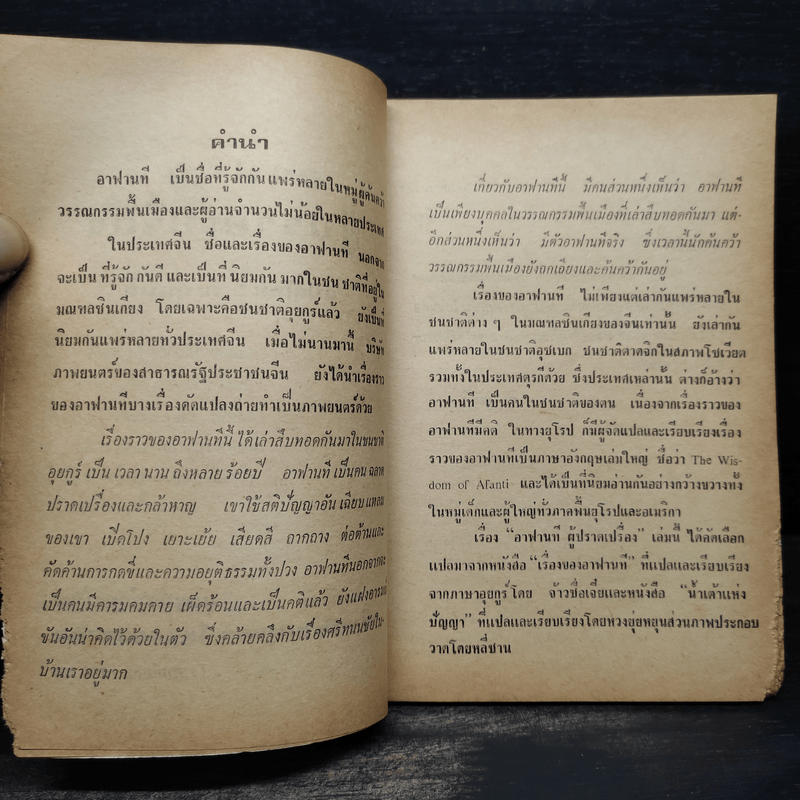 คำนำ
อาฟานที เป็นชื่อที่รู้จักกันแพร่หลายในหมู่ผู้ค้นคว้า
วรรณกรรมพื้นเมืองและผู้อ่านจำนวนไม่น้อยในหลายประเทศ
ในประเทศจีน ชื่อและเรื่องของอาฟานที นอกจาก
จะเป็นที่รู้จักกันดีและเป็นที่นิยมกันมากในชนชาติที่อยู่ใน
มณฑลซินเกียง โดยเฉพาะคือชนชาติอุยกูร์แล้ว ยังเป็นที่
นิยมกันแพร่หลายทั่วประเทศจีน เมื่อไม่นานมานี้ บริษัท
ภาพยนตร์ของสาธารณรัฐประชาชนจีน ยังได้นำเรื่องราว
ของอาฟานทีบางเรื่องดัดแปลงถ่ายทำเป็นภาพยนตร์ด้วย
เรื่องราวของอาฟานทีนี้ ได้เล่าสืบทอดกันมาในชนชาติ
อุยกูร์ เป็นเวลานานถึงหลายร้อยปี อาฟานทีเป็นคนฉลาด
ปราดเปรื่องและกล้าหาญ เขาใช้สติปัญญาอันเฉียบแหลม
ของเขา เปิดโปง เยาะเย้ย เสียดสี ถากถาง ต่อต้านและ
คัดค้านการกดขี่และความอยุติธรรมทั้งปวง อาฟานทีนอกจากจะ
เป็นคนมีคารมคมคาย เผ็ดร้อนและเป็นคติแล้ว ยังแฝงอารมณ์
ขันอันน่าคิดไว้ด้วยในตัว ซึ่งคล้ายคลึงกับเรื่องศรีทนนชัยใน-
บ้านเราอยู่มาก
เกี่ยวกับอาฟานทีนี้ มีคนส่วนหนึ่งเห็นว่า อาฟานที
เป็นเพียงบุคคลในวรรณกรรมพื้นเมืองที่เล่าสืบทอดกันมา แต่-
อีกส่วนหนึ่งเห็นว่า มีตัวอาฟานทีจริง ซึ่งเวลานี้นักค้นคว้า
วรรณกรรมพื้นเมืองยังถกเถียงและค้นคว้ากันอยู่
เรื่องของอาฟานที ไม่เพียงแต่เล่ากันแพร่หลายใน
ชนชาติต่าง ๆ ในมณฑลซินเกียงของจีนเท่านั้น ยังเล่ากัน
แพร่หลายในชนชาติอุซเบก ชนชาติตาดจิกในสภาพโซเวียต
รวมทั้งในประเทศตุรกีด้วย ซึ่งประเทศเหล่านั้น ต่างก็อ้างว่า
อาฟานที เป็นคนในชนชาติของตน เนื่องจากเรื่องราวของ
อาฟานทีมีคติ ในทางยุโรป ก็มีผู้จัดแปลและเรียบเรียงเรื่อง
ราวของอาฟานทีเป็นภาษาอังกฤษเล่มใหญ่ ชื่อว่า The Wis-
dom of Afanti และได้เป็นที่นิยมอ่านกันอย่างกว้างขวางทั้ง
ในหมู่เด็กและผู้ใหญ่ทั่วภาคพื้นยุโรปและอเมริกา
เรื่อง “อาฟานที ผู้ปราดเปรื่อง” เล่มนี้ ได้คัดเลือก
แปลมาจากหนังสือ “เรื่องของอาฟานที” ที่แปลและเรียบเรียง
จากภาษาอุยกูร์โดย จ้าวซื่อเจี๋ยและหนังสือ “น้ำเต้าแห่ง
ปัญญา” ที่แปลและเรียบเรียงโดยหวงยุ่ยหยุนส่วนภาพประกอบ
วาดโดยหลี่ซาน